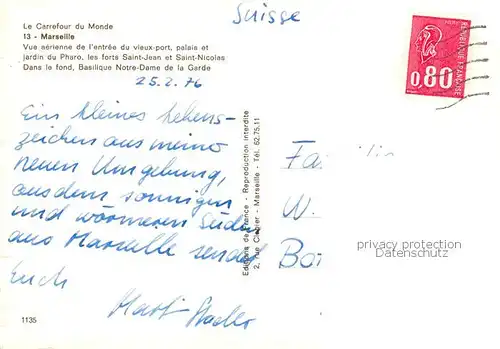 Le Carrefour du Monde
13 - Marseille
Vue aérienne de l'entrée du vieux-port, palais et
jardin du Pharo, les forts Saint-Jean et Saint-Nicolas
Dans le fond, Basilique Notre-Dame de la Garde
25.2.76
Ein kleines Lebens-
zeichen aus meiner
neuen Umgebung,
aus dem sonnigen
und wärmeren Süden
aus Marseille sendet
Euch
1135
Editions de France - Reproduction interdite
2, rue - Marseille - Tél. 62.75.11
Suisse
REPUBLIQUE FRANÇAISE
0,80
Fa
W.
privacy protection
Datenschutz